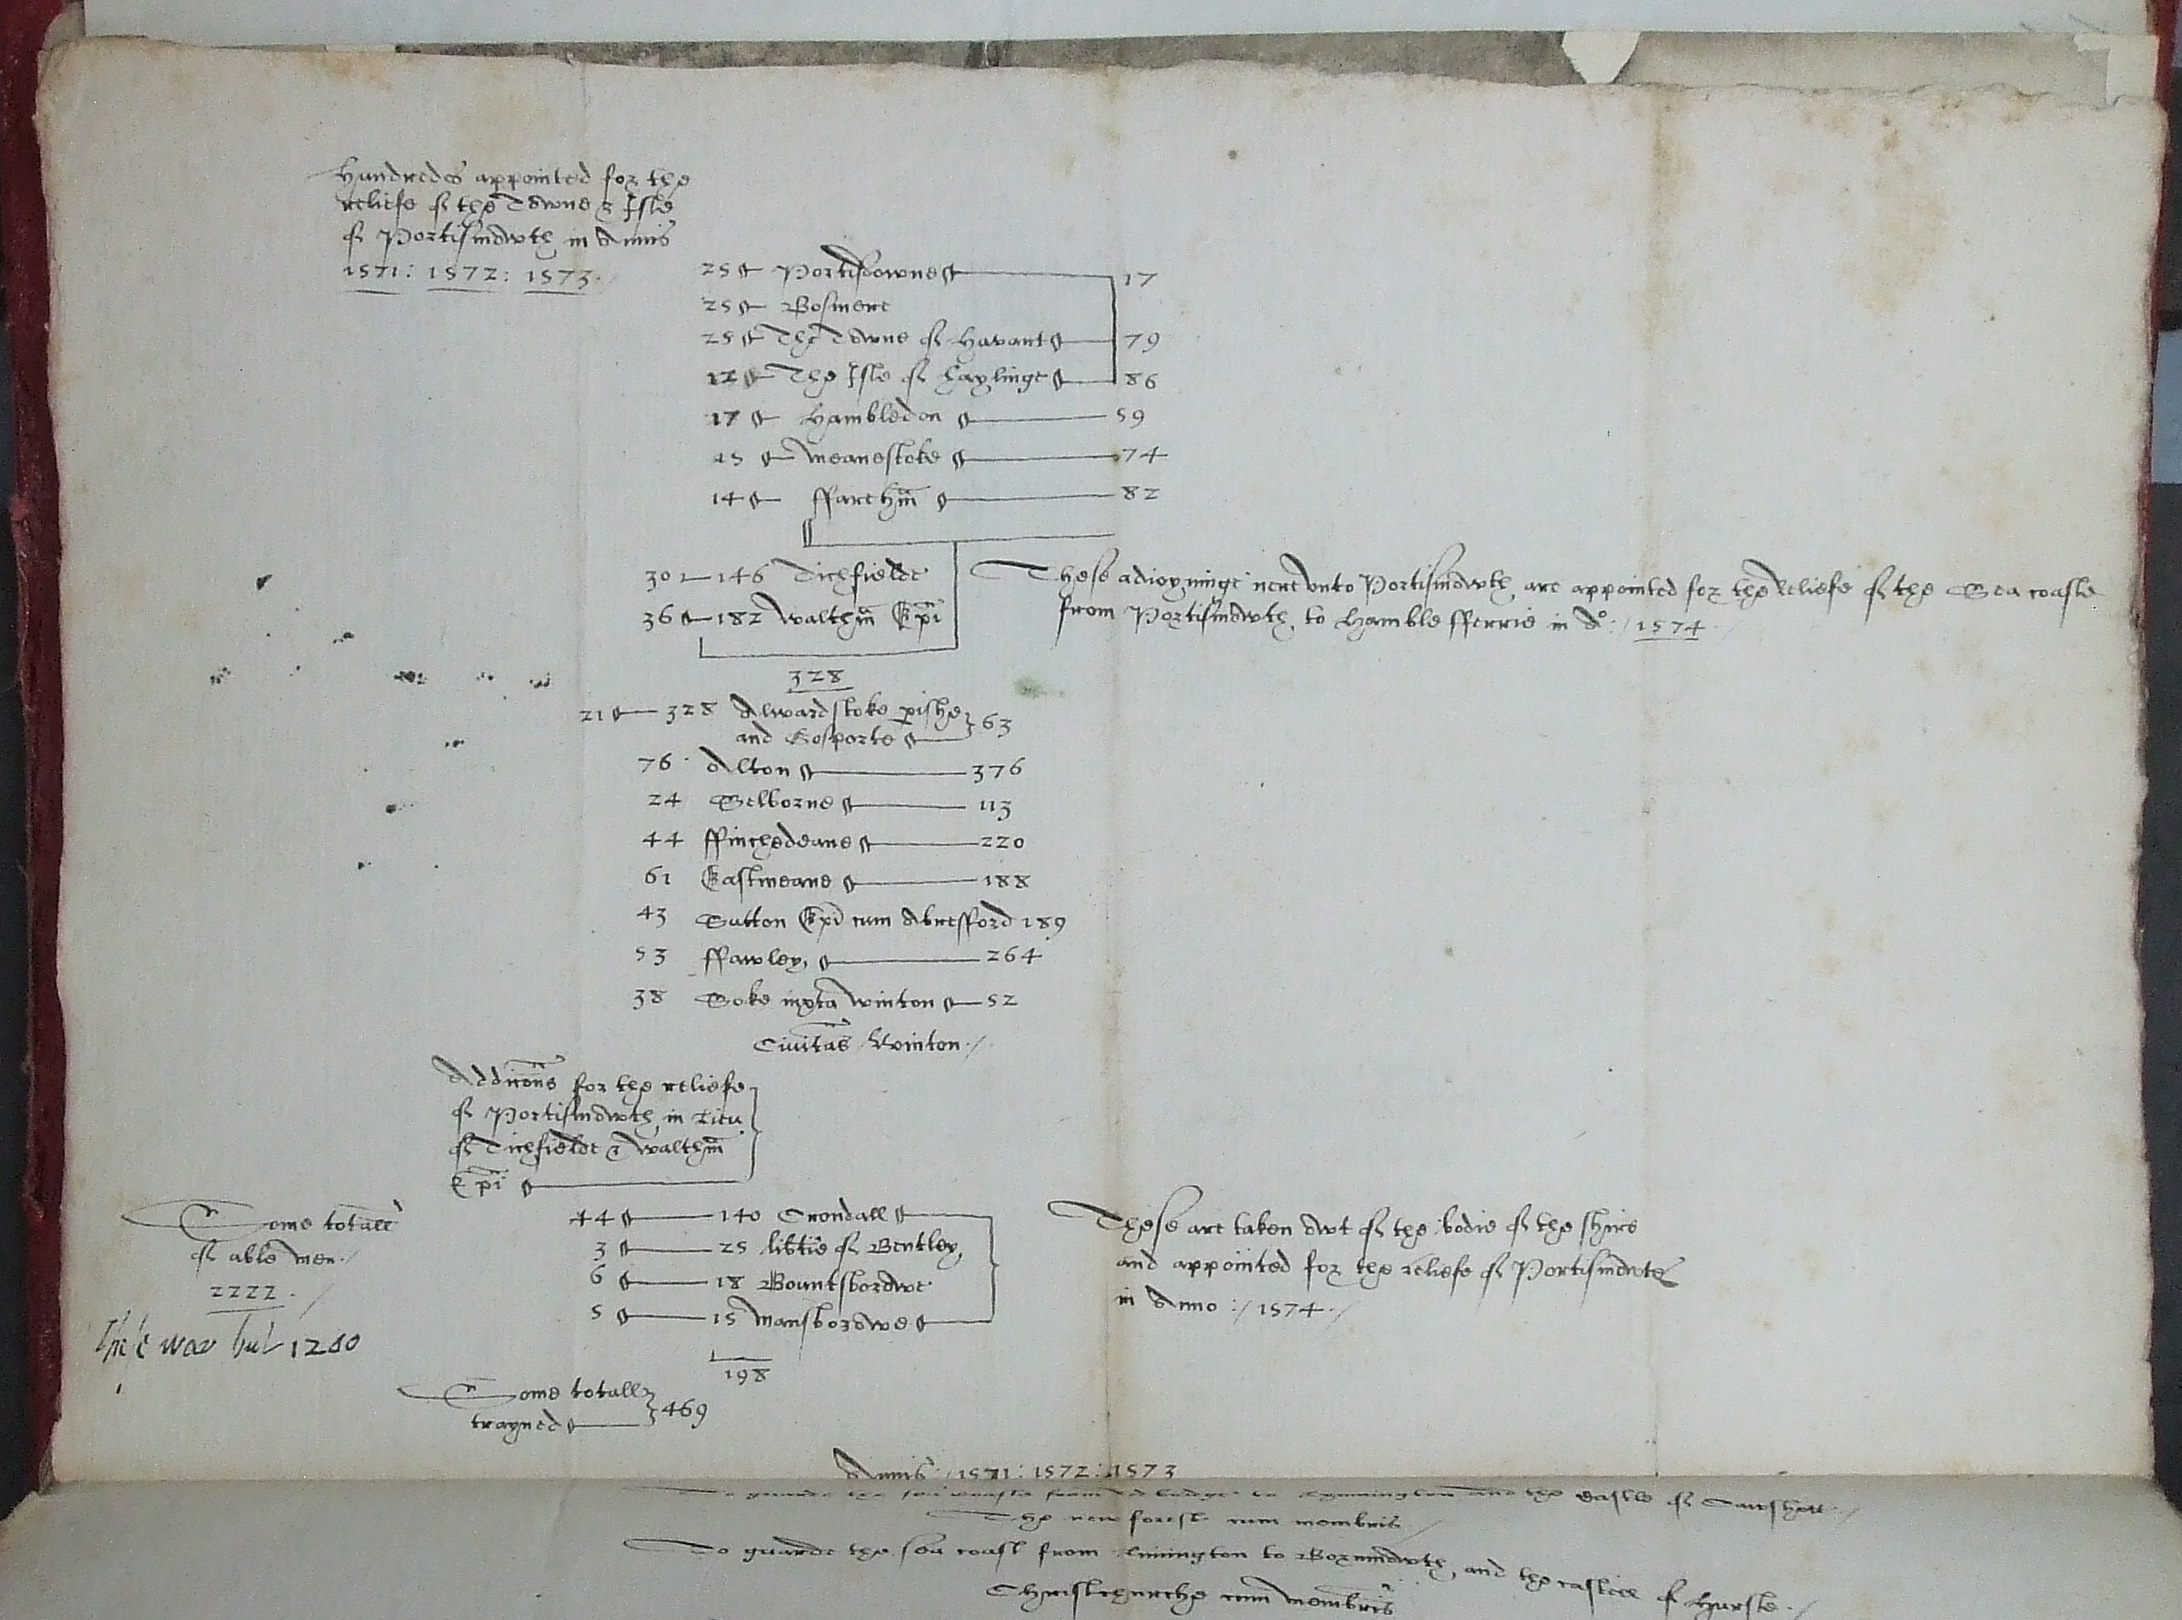 Hundredes appointed for the
reliefe of the Towne & Isle
of Portismowth in Annis
1571 : 1572 : 1573.
25 Portisdowne 17
25 Bosmere
25 The Towne of Havant 79
12 The Isle of Haylinge 86
17 Hambledon 59
15 Meanestoke 74
14 ffarehm̄ 82
30 146 Tichfielde
36 182 Walthm̄ Ep̄i
These adioyninge nere vnto Portismowth, are appointed for the reliefe of the Sea coaste
from Portismowth, to Hamble fferrie in Aº : / 1574
328
21 328 Alwardstoke p̱ishe
and Gosporte 63
76 Alton 376
24 Selborne 113
44 ffinchedeane 220
61 Eastmeane 188
43 Sutton Ep̄i cum Alresfford 189
53 ffawley, 264
38 Soke iuxta Winton 52
Civitas Winton . /
Addic̄ons for the reliefe
of Portismowth, in Lieu
of Tichfielde & Walthm̄
Ep̄i
Some totall
of able men . /
2222 . /
but 1200
44 140 Crondall
3 25 lib̄tie of Bentley,
6 18 Bountsborowe
5 15 Mansborowe
198
These are taken owt of the bodie of the shire
and appointed for the reliefe of Portismowth
in Anno : / 1574 . /
Some totall
trayned 469
Annis : / 1571 : 1572 : 1573
To guarde the sea coaste from to Lymington and the castle of Caushott . /
The new forest cum membris /
To guarde the sea coast from Limington to Bornmowth, and the castell of Hurste . /
Christchurche cum membris